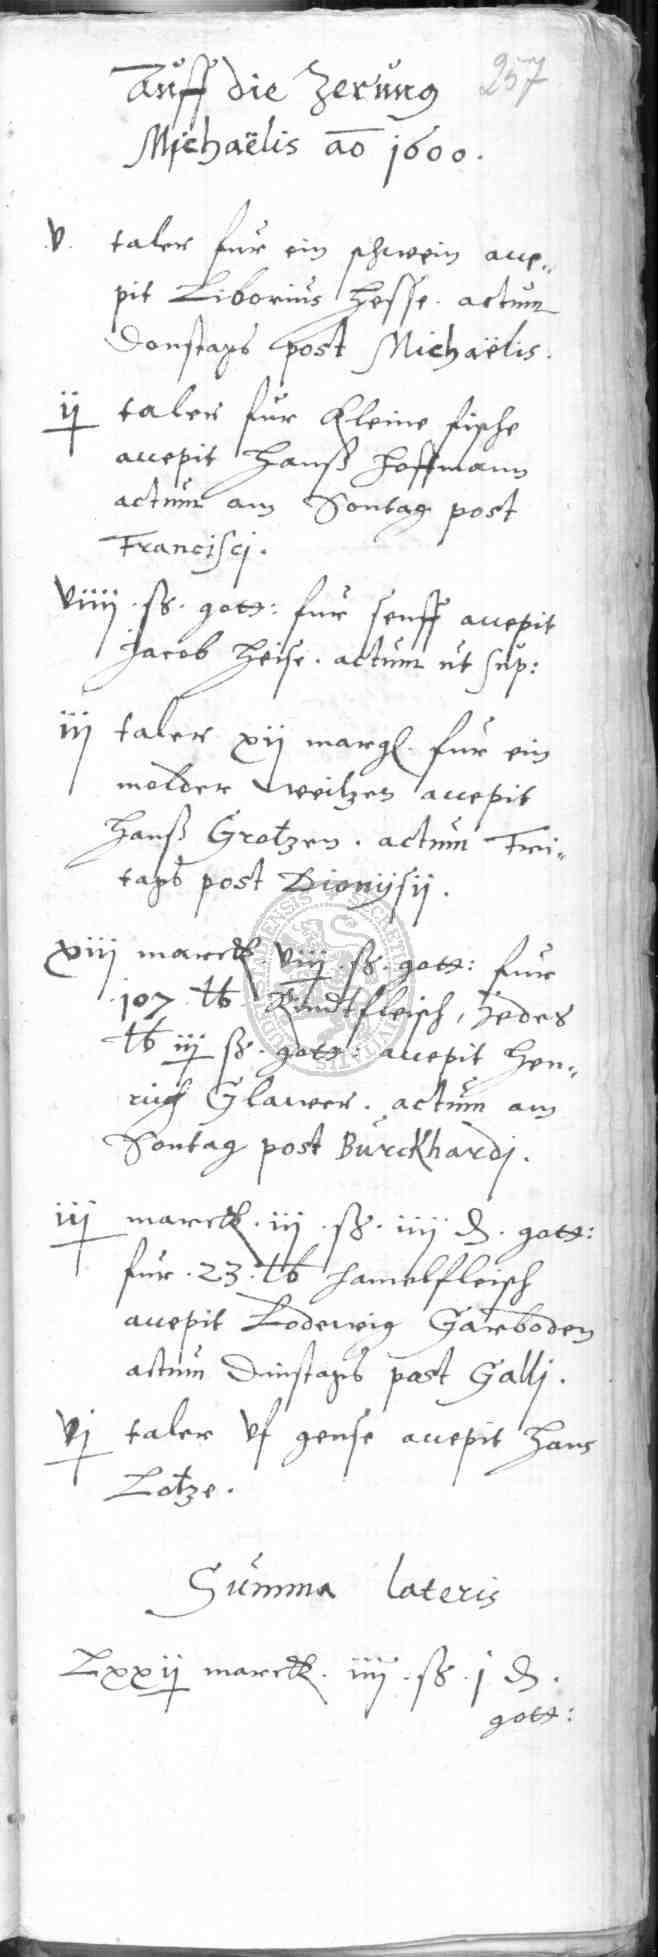 257
Auff die Zerung
Michaëlis ao 1600.
v. taler fur ein schwein acce-
pit Liborius Hesse. actum
Donstags post Michaëlis.
ij taler fur kleine fische
accepit Hanß Hoffmann
actum am Sontag post
Francisci.
viiij. ß. gott: fur senff accepit
Jacob Heise. actum ut sup:
iij taler xij margl. fur ein
molder weitzen accepit
Hanß Grotzen. actum Fri-
tags post Dionijsij.
xiij marck. viij. ß. gott: fur
107 lb Rindtfleisch, jedes
lb iij ß. gott: accepit Hen-
rich Glawer. actum am
Sontag post Burckhardj.
iij marck. iij. ß. iiij d. gott:
fur. 23. lb hamelfleisch
accepit Lodewig Garboden
actum Dinstags post Gallj.
vj taler uf gense accepit Hans
Lotze.
Summa lateris
Lxxij marck. iiij. ß. j d.
gott: